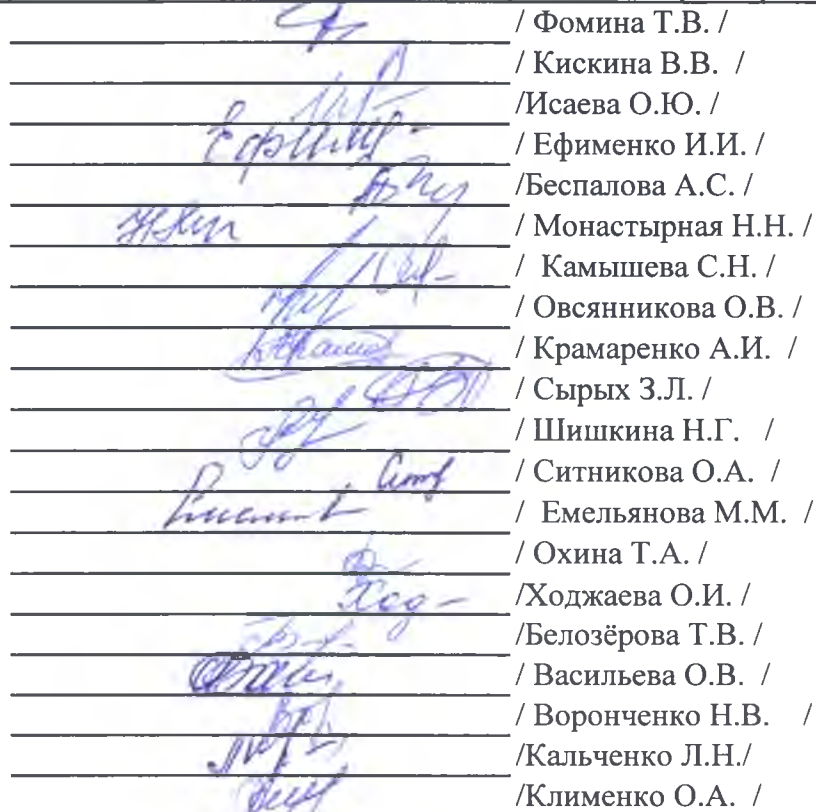 / Фомина Т.В. /
/ Кискина В.В. /
/Исаева О.Ю. /
/ Ефименко И.И. /
/Беспалова А.С. /
/ Монастырная Н.Н. /
/ Камышева С.Н. /
/ Овсянникова О.В. /
/ Крамаренко А.И. /
/ Сырых З.Л. /
/ Шишкина Н.Г. /
/ Ситникова О.А. /
/ Емельянова М.М. /
/ Охина Т.А. /
Ход- /Ходжаева О.И. /
/Белозёрова Т.В. /
/ Васильева О.В. /
/ Воронченко Н.В. /
/Кальченко Л.Н./
/Клименко О.А. /